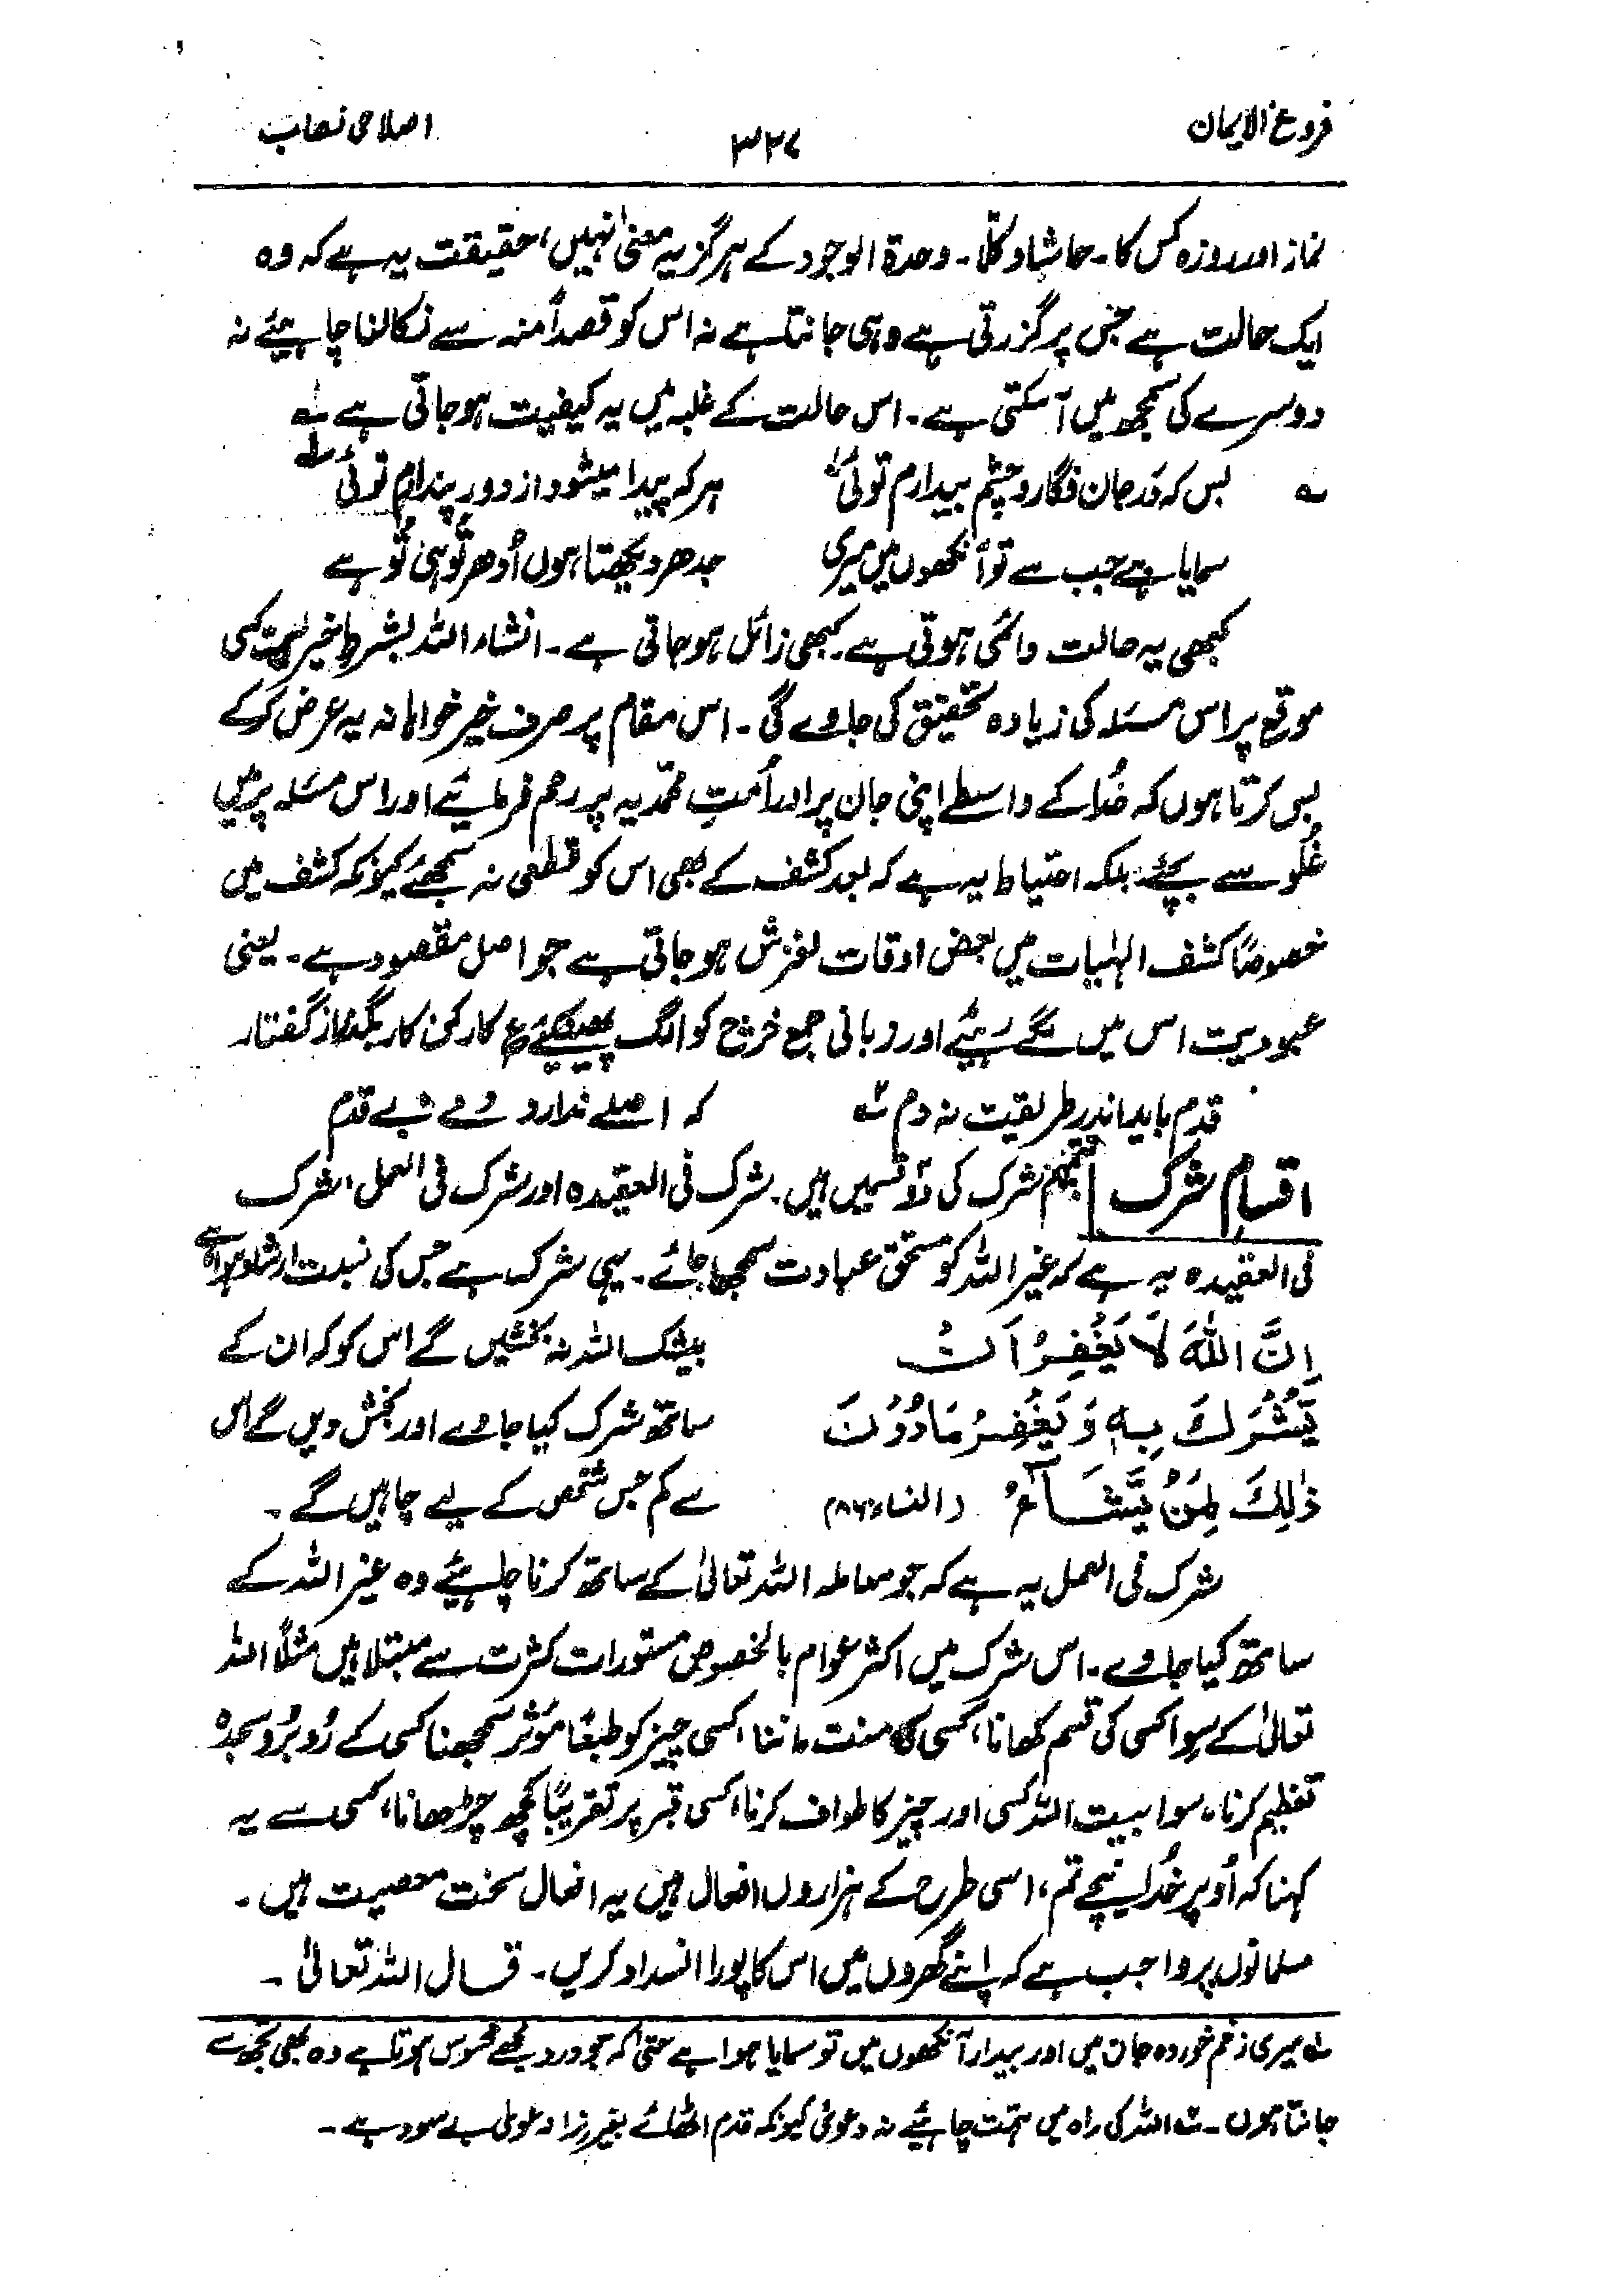 فروع الایمان
۳۲۷
اصلاحی نصاب
نماز اور روزہ کس کا۔ حاشا و کلّا۔ وحدۃ الوجود کے ہرگز یہ معنیٰ نہیں، حقیقت یہ ہے کہ وہ
ایک حالت ہے جس پر گزرتی ہے وہی جانتا ہے نہ اس کو قصداً منہ سے نکالنا چاہیئے نہ
دوسرے کی سمجھ میں آ سکتی ہے۔ اس حالت کے غلبہ میں یہ کیفیت ہو جاتی ہے
بس کہ در جان فگار و چشم بیدارم توئی هر که پیدا میشود از دور پندارم توئی
سمایا ہے جب سے تو آنکھوں میں میری جدھر دیکھتا ہوں اُدھر تُو ہی تُو ہے
کبھی یہ حالت دائمی ہوتی ہے۔ کبھی زائل ہو جاتی ہے۔ انشاء اللہ بشرط خیریت کسی
موقع پر اس مسئلہ کی زیادہ تحقیق کی جاوے گی۔ اس مقام پر صرف خیر خواہانہ یہ عرض کر کے
بس کرتا ہوں کہ خُدا کے واسطے اپنی جان پر اور اُمتِ محمّدیہ پر رحم فرمائیے اور اس مسئلہ پر میں
غُلو سے بچئے بلکہ احتیاط یہ ہے کہ بعد کشف کے بھی اس کو قطعی نہ سمجھئے کیونکہ کشف میں
خصوصًا کشف الہٰیات میں بعض اوقات لغزش ہو جاتی ہے جو اصل مقصود ہے۔ یعنی
عبودیت اس میں لگے رہئیے اور زبانی جمع خرچ کو الگ پھینکئے ع کار کن کار بگذار گفتار
قدم باید اندر طریقت نہ دم کہ اصلے ندارد دمے بے قدم
اقسامِ شرک پنجم شرک کی دو قسمیں ہیں۔ شرک فی العقیدہ اور شرک فی العمل، شرک
فی العقیدہ یہ ہے کہ غیر اللہ کو مستحق عبادت سمجھا جائے۔ یہی شرک ہے جس کی نسبت ارشاد ہوا ہے
اِنَّ اللّٰهَ لَا يَغْفِرُ اَنْ بیشک اللہ نہ بخشیں گے اس کو کہ ان کے
يُّشْرَكَ بِهٖ وَيَغْفِرُ مَا دُوْنَ ساتھ شرک کیا جاوے اور بخش دیں گے اس
ذٰلِكَ لِمَنْ يَّشَآءُ (النساء: ) سے کم جس شخص کے لیے چاہیں گے۔
شرک فی العمل یہ ہے کہ جو معاملہ اللہ تعالیٰ کے ساتھ کرنا چاہیئے وہ غیر اللہ کے
ساتھ کیا جاوے۔ اس شرک میں اکثر عوام بالخصوص مستورات کثرت سے مبتلا ہیں مثلاً اللہ
تعالیٰ کے سِوا کسی کی قسم کھانا، کسی کی منت ماننا، کسی چیز کو طبعًا مؤثر سمجھنا کسی کے رُوبرُو سجدہ
تعظیم کرنا، سوا بیت اللہ کسی اور چیز کا طواف کرنا، کسی قبر پر تقریبًا کچھ چڑھانا، کسی سے یہ
کہنا کہ اُوپر خُدا نیچے تم، اسی طرح کے ہزاروں افعال ہیں یہ افعال سخت معصیت ہیں۔
مسلمانوں پر واجب ہے کہ اپنے گھروں میں اس کا پورا انسداد کریں۔ قال اللہ تعالیٰ۔
میری زخم خوردہ جان میں اور بیدار آنکھوں میں تو سمایا ہوا ہے حتیٰ کہ جو دور سے مجھے محسوس ہوتا ہے وہ بھی تجھ سے
جانتا ہوں۔ اللہ کی راہ میں ہمّت چاہیئے نہ دعویٰ کیونکہ قدم اٹھائے بغیر نرا دعویٰ بے سود ہے۔